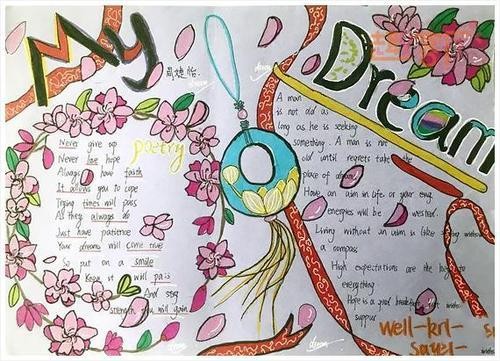 My Dream
poetry
Never give up
Never lose hope
Always have faith
It allows you to cope
Trying times will pass
As they always do
Just have patience
Your dreams will come true
So put on a smile
Know it will pass
And
strength you will gain
A man
is not old as
long as he is seeking
something. A man is not
old until regrets take the
place of
Have an aim in life or your
energies will be
Living without an aim is like
a compass
High expectations are the key to
everything
Hope is a good breakfast
supper